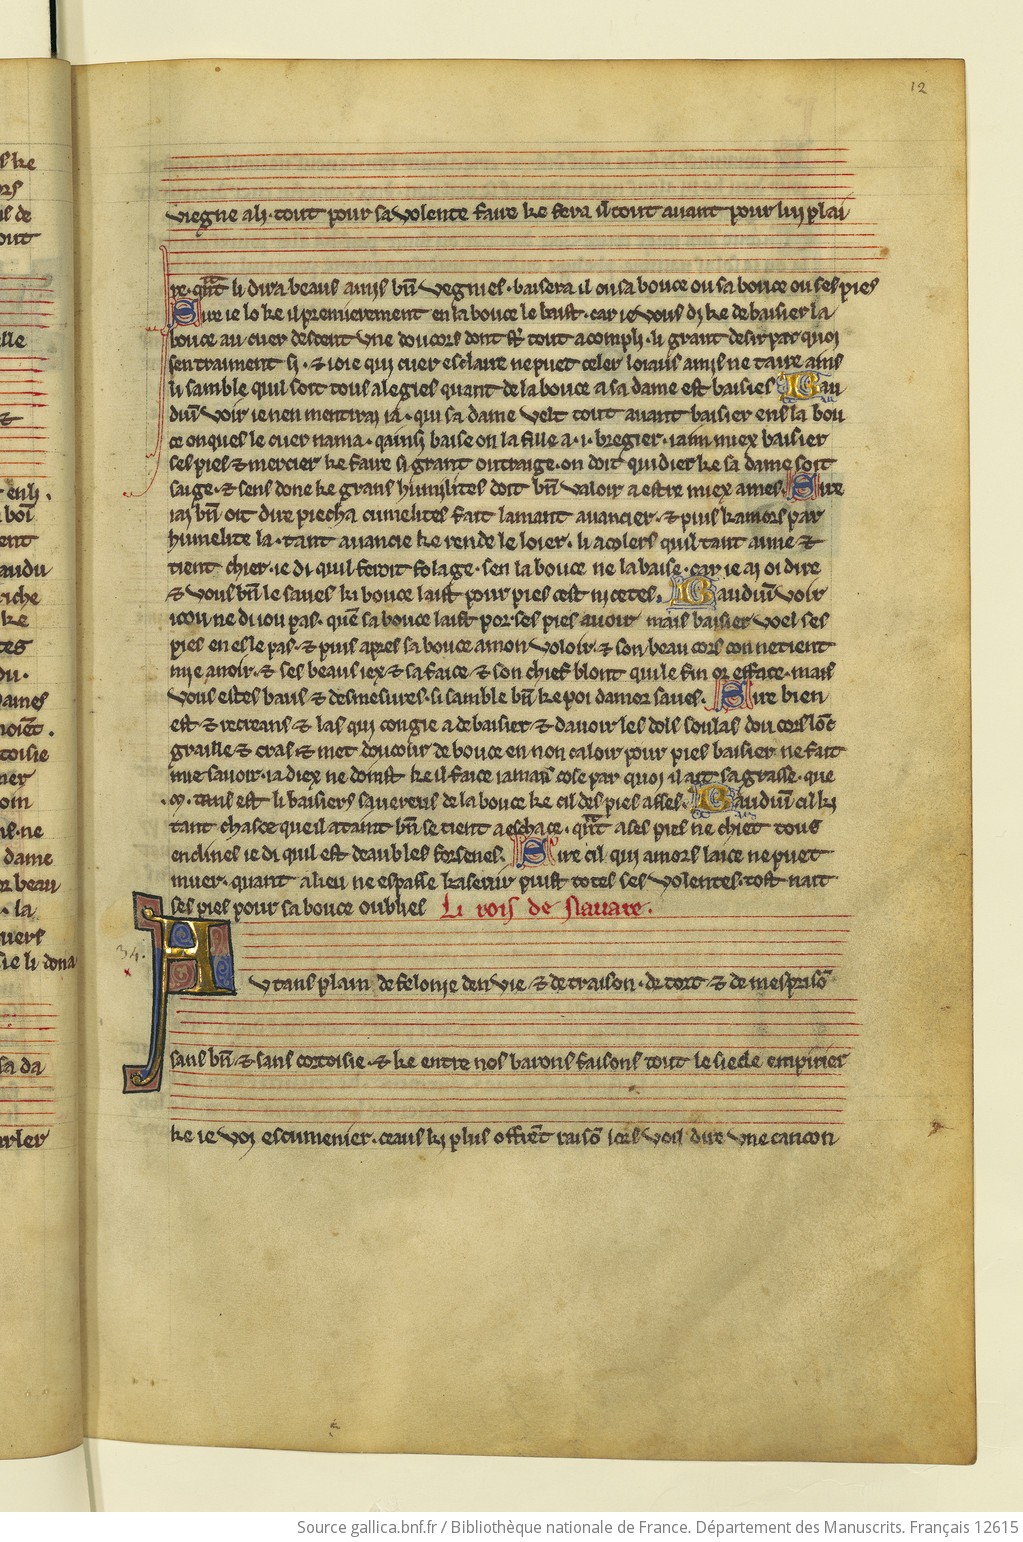 12
viegne a li · tout pour sa volente faire ke fera il tout auant pour luy plai
re · qñt li dira beaus amis bn̄ vegnies · baisera il ou sa bouce ou sa bouce ou ses pies
Sire ie lo ke il premierement en la bouce le baist · car ie vous di ke de baisier la
bouce au cuer descent vne doucors dont st̄ tout acompli · li grant desir par quoi
sentraiment si · & ioie qui cuer esclaire ne puet celer loiaus amis ne taire ains
li samble quil soit tous alegies quant de la bouce a sa dame est baisies Bau
duīn voir ie nen mentirai ia · qui sa dame velt tout auant baisier ens la bou
ce onques le cuer nama · qainsi baise on la fille a · i · bregier · iaim miex baisier
ses pies & mercier ke faire si grant outraige · on doit quidier ke sa dame soit
saige · & sens done ke grans humilites doit bn̄ valoir a estre miex ames · Sire
iai bn̄ oit dire piecha cumelites fait lamant auancier · & puis kamors par
humelite la · tant auancie ke rende le loier · li acolers quil tant aime &
tient chier · ie di quil feroit folage · sen la bouce ne la baise · car ie ai oi dire
& vous bn̄ le saues ki bouce laist pour pies cest nicetes · Bauduīn voir
icou ne di iou pas · quē sa bouce laist por ses pies auoir mais baisier voel ses
pies en es le pas · & puis apres sa bouce a mon voloir · & son beau cors con ne tient
mie a noir · & ses beaus iex & sa face & son chief blont qui le fin or efface · mais
vous estes baus & desmesures · si samble bn̄ ke poi damor saues · Sire bien
est & recreans & las qui congie a de baisier & dauoir les dols soulas dou cors lōc
graille & cras & met doucour de bouce en non caloir pour pies baisier ne fait
mie sauoir · ia diex ne doinst ke il faice iamais cose par quoi il ait sa grasse · que
· m · tans est li baisiers sauereus de la bouce ke cil des pies asses · Bauduīn cil ki
tant chasce que il ataint bn̄ se tient a eschace · qñt a ses pies ne chiet tous
enclines ie di quil est deaubles forsenes · Sire cil qui amors laice ne puet
muer · quant a lieu ne espasse kaserur puist totes ses volentes · tost nait
ses pies pour sa bouce oublies Li rois de Nauare ·
34.
A vtans plain de felonie denvie · & de traison · de tort & de mesprisō
sans bn̄ · & sans cortoisie · & ke entre nos barons faisons tout le siecle empirier
ke ie voi escumenier · ceaus ki plus offrēt raisō lors voil dire vne cancon
Source gallica.bnf.fr / Bibliothèque nationale de France. Département des Manuscrits. Français 12615